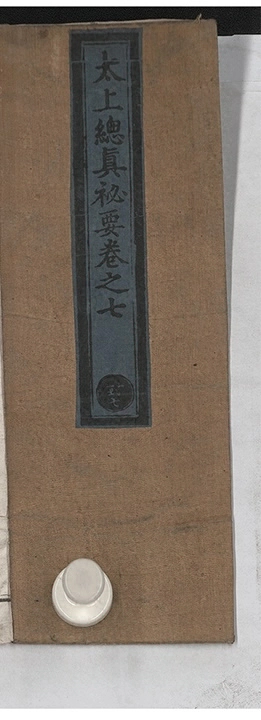 太上總眞祕要卷之七